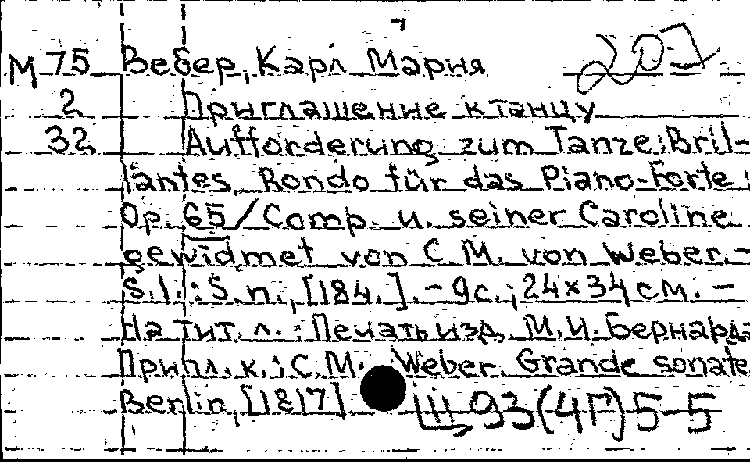 М 75 Вебер, Карл Мария
2 Приглашение к танцу
32 Aufforderung zum Tanze: Bril-
lantes Rondo für das Piano-Forte:
Op. 65/Comp. u. seiner Caroline
gewidmet von C.M. von Weber. -
S.l.: S.n., [184.]. - 9с.; 24x34 см. -
На тит. л.: Печать изд. М.И. Бернарда
Припл. к.: C.M. Weber. Grande sonate
Berlin, [1817]
Щ 93(4Г)5-5